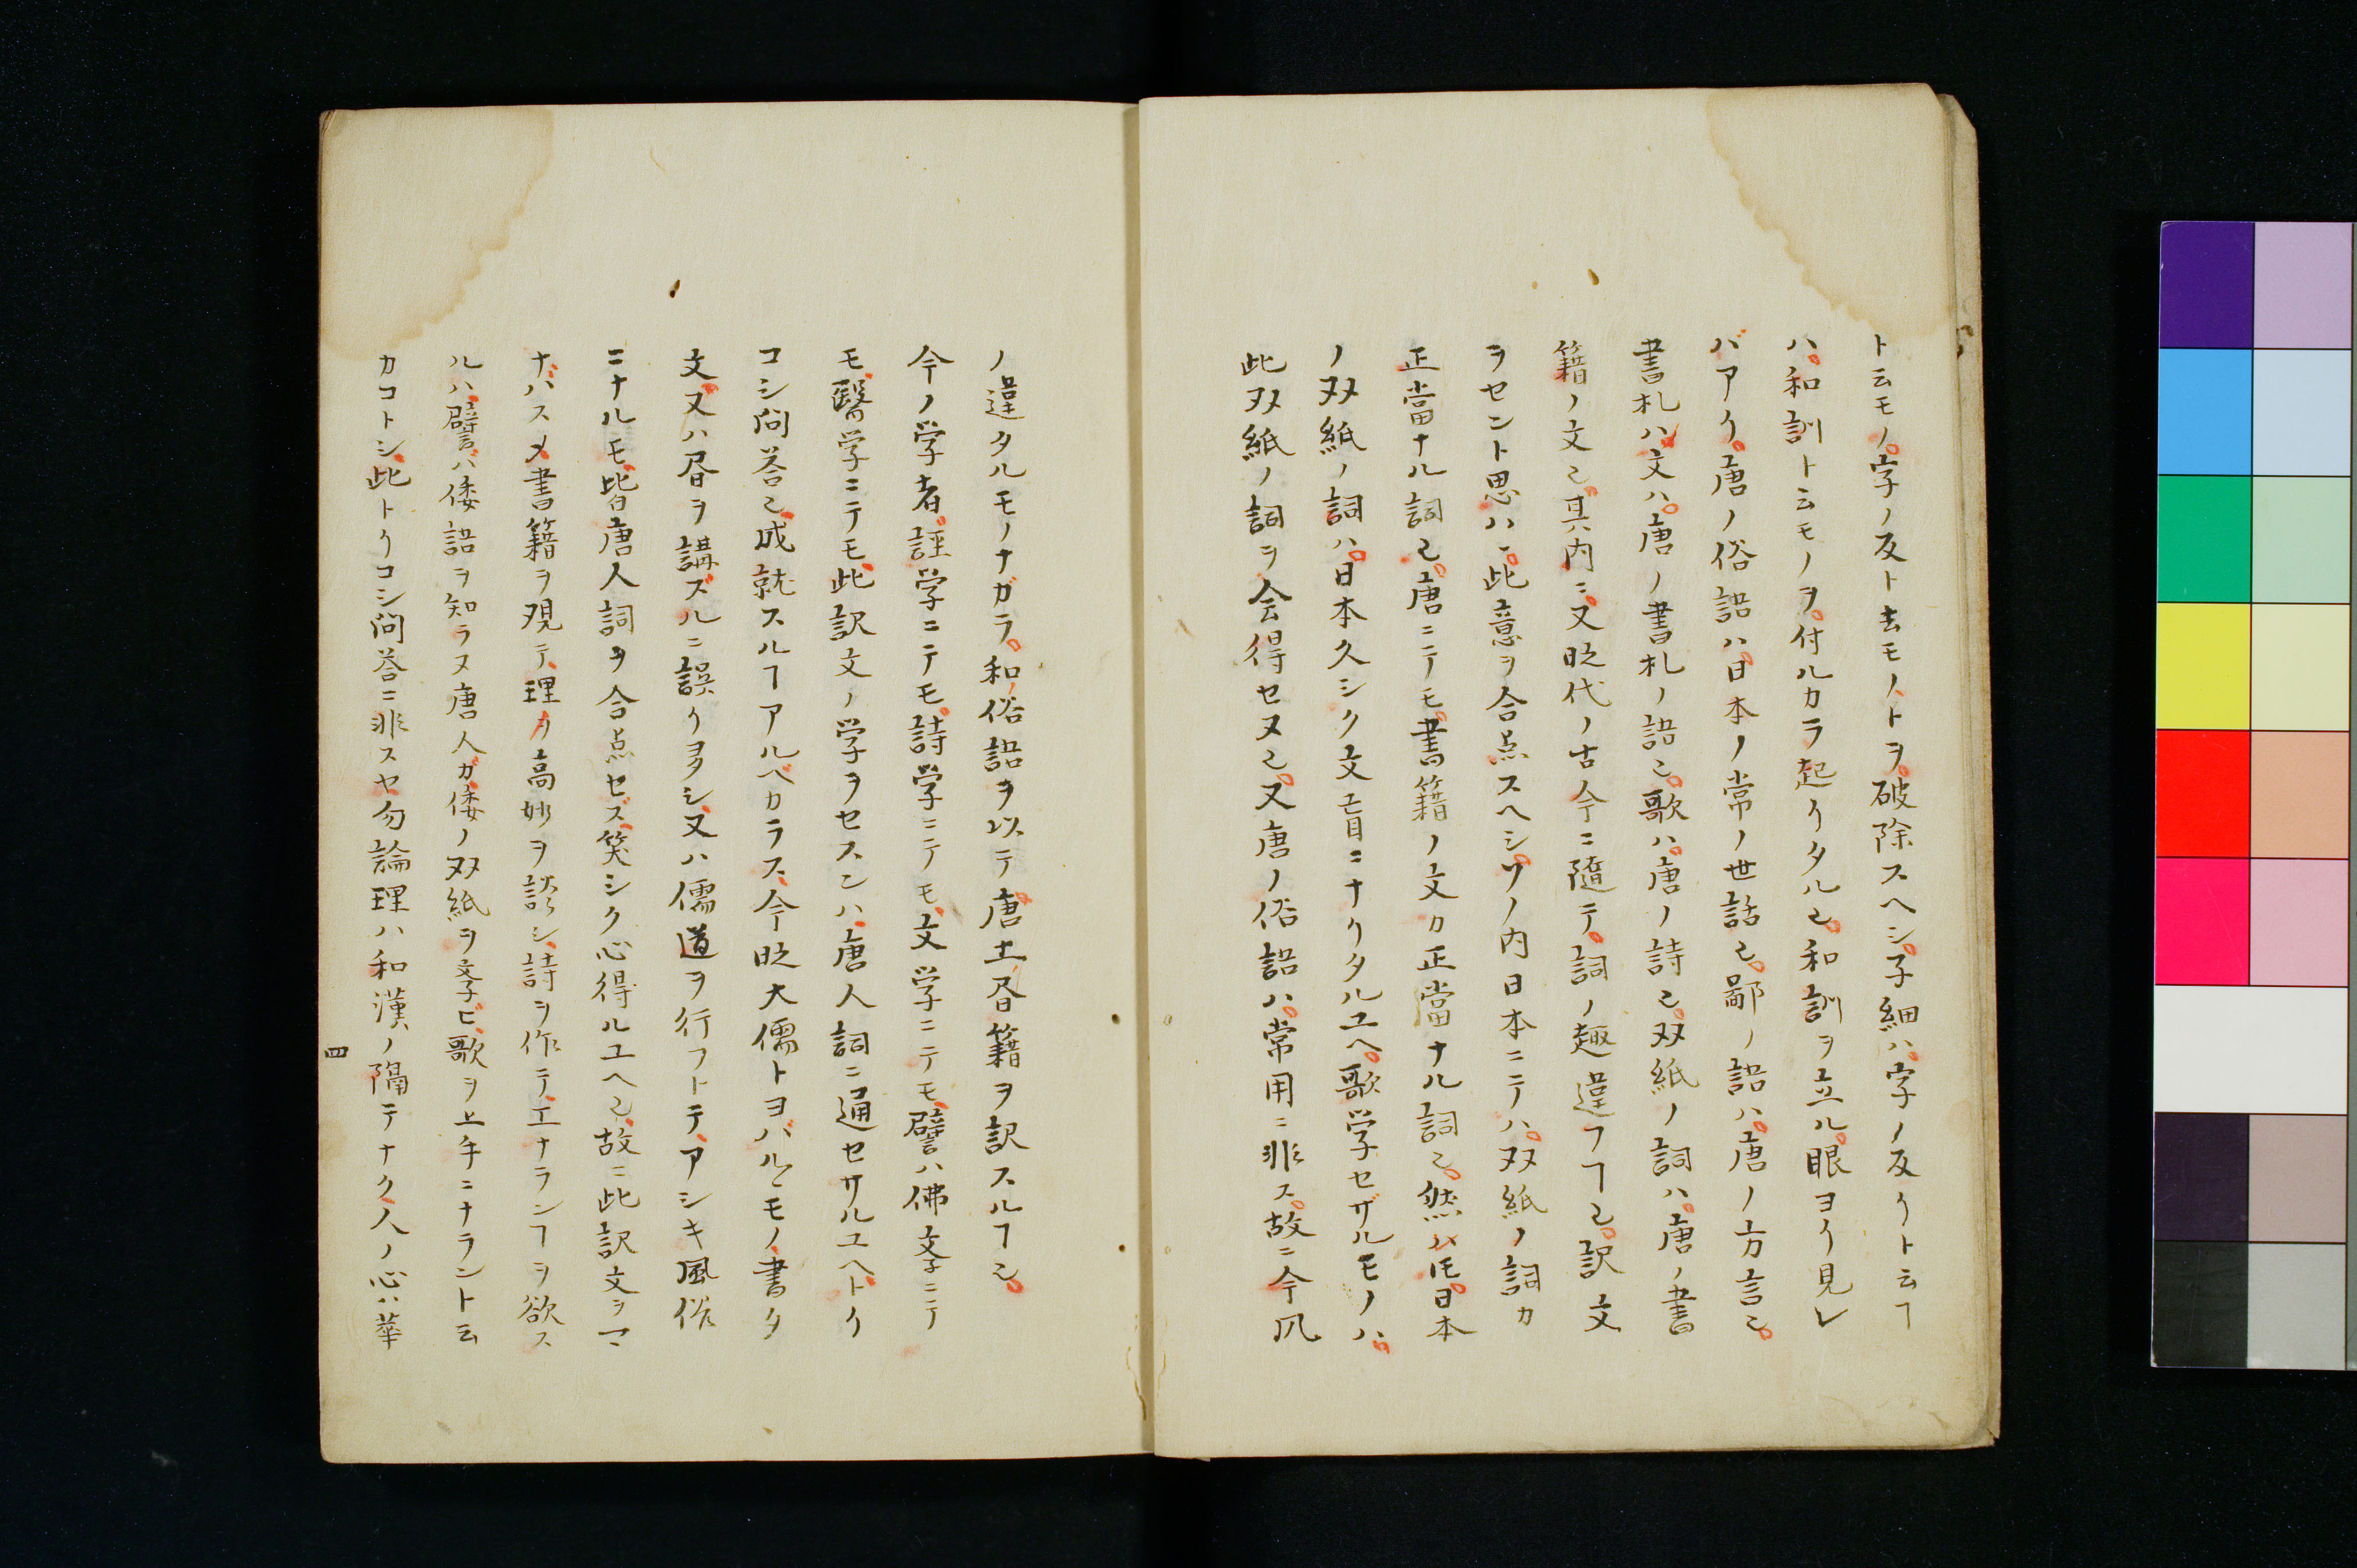 ト云モノ。字ノ反ト去モノトヲ。破除スヘシ。子細ハ。字ノ反リト云ヿ
ハ。和訓ト云モノヲ。付ルカラ起リタル也。和訓ヲ立ル。眼ヨリ見レ
バアリ。唐ノ俗語ハ。日本ノ常ノ世話也。鄙ノ語ハ。唐ノ方言也。
書札ハ文ハ。唐ノ書札ノ語也。歌ハ。唐ノ詩也。双紙ノ詞ハ。唐ノ書
籍ノ文也。其内ニ。又眀代ノ古今ニ隨テ。詞ノ趣違フヿ也。訳文
ヲセント思ハヾ。此意ヲ合点スヘシ。ソノ内日本ニテハ。双紙ノ詞カ
正當ナル詞也。唐ニテモ。書籍ノ文カ正當ナル詞也。然ハ𪜈。日本
ノ双紙ノ詞ハ。日本久シク文盲ニナリタルユヘ。歌学セザルモノハ。
此双紙ノ詞ヲ会得セヌ也。又唐ノ俗語ハ。常用ニ非ス。故ニ今凨
ノ違タルモノナガラ。和俗語ヲ以テ。唐土昼籍ヲ訳スルヿ也。
今ノ学者、誣学ニテモ、詩学ニテモ、文学ニテモ、譬ハ佛文字ニテ
モ、醫学ニテモ、此訳文ノ学ヲセズンハ、唐人詞ニ通セサルユヘ、トリ
コシ問荅也、成就スルヿアルベカラス、今眀大儒トヨバルヽモノ、書タ
文、又ハ昼ヲ講ズルニ誤リ多シ、又ハ儒道ヲ行フトテ、アシキ風俗
ニナルモ、皆唐人詞ヲ合点セズ、笑シク心得ルユヘ也、故ニ此訳文ヲマ
ナバスメ、書籍ヲ覌テ、理ヲ高妙ヲ談シ、詩ヲ作テ、エナランヿヲ欲ス
ルハ、譬バ倭語ヲ知ラヌ唐人ガ、倭ノ双紙ヲ学ビ、歌ヲ上手ニナラント云
カコトシ、此トリコシ問荅ニ非スヤ、勿論理ハ和漢ノ隔テナク、人ノ心ハ華
四